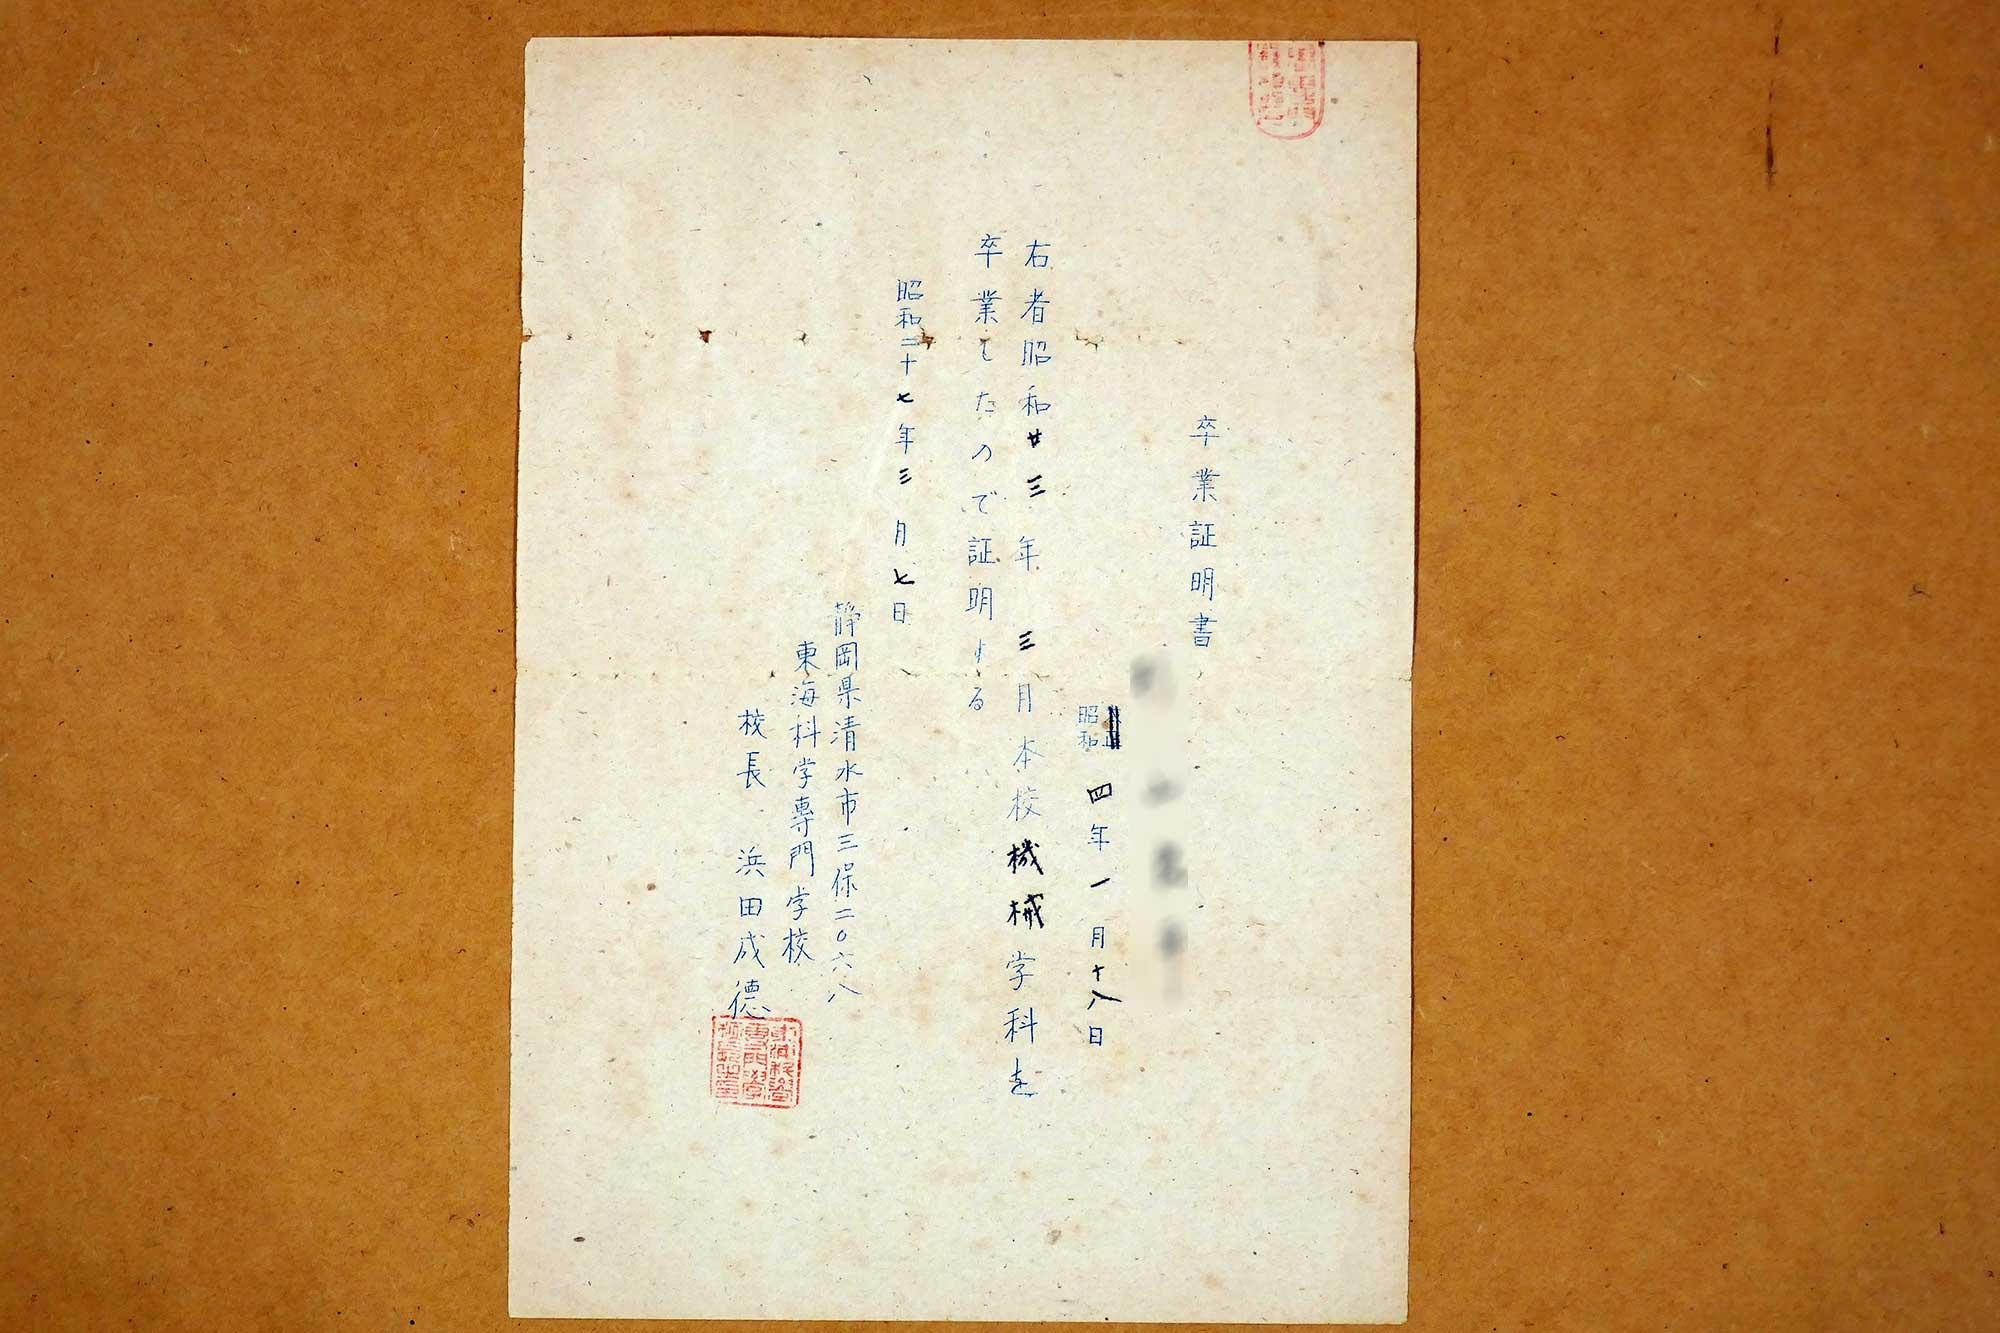 卒業証明書
昭和 四年一月十八日
右者昭和廿三年三月本校機械学科を
卒業したので証明する
昭和二十七年三月七日
静岡県清水市三保二〇六八
東海科学専門学校
校長 浜田成徳